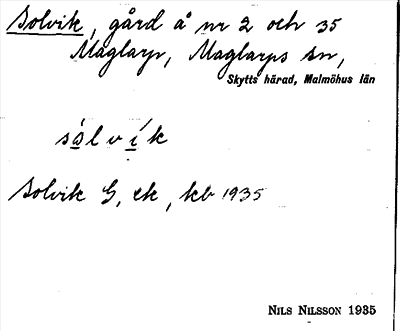 Solvik, gård å nr 2 och 35
Maglarp, Maglarps sn,
Skytts härad, Malmöhus län
sálvík
Solvik G, ek, kb 1935
NILS NILSSON 1935